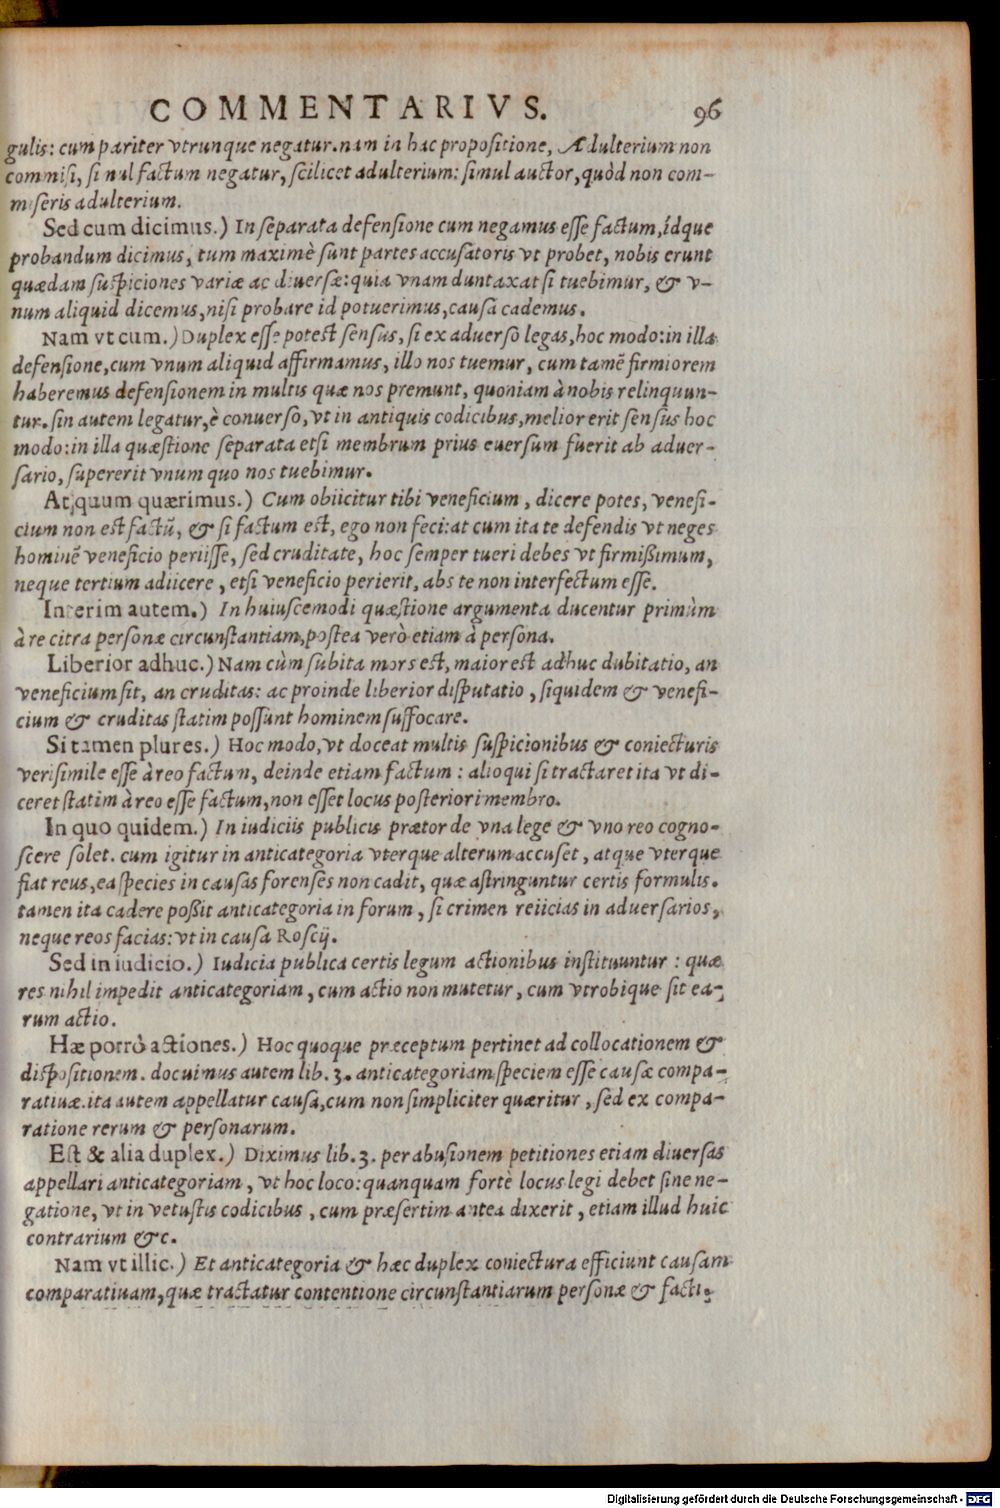 COMMENTARIVS. 96
gulis: cum pariter vtrunque negatur. nam in hac propositione, Adulterium non
commisi, simul factum negatur, scilicet adulterium: simul auctor, quòd non com-
miseris adulterium.
Sed cum dicimus.) In separata defensione cum negamus esse factum, idque
probandum dicimus, tum maximè sunt partes accusatoris vt probet, nobis erunt
quædam suspiciones variæ ac diuersæ: quia vnam duntaxat si tuebimur, & v-
num aliquid dicemus, nisi probare id potuerimus, causa cademus.
Nam vt cum.) Duplex esse potest sensus, si ex aduerso legas, hoc modo: in illa
defensione, cum vnum aliquid affirmamus, illo nos tuemur, cum tamẽ firmiorem
haberemus defensionem in multis quæ nos premunt, quoniam à nobis relinquun-
tur. sin autem legatur, è conuerso, vt in antiquis codicibus, melior erit sensus hoc
modo: in illa quæstione separata etsi membrum prius euersum fuerit ab aduer-
sario, supererit vnum quo nos tuebimur.
At quum quærimus.) Cum obiicitur tibi veneficium, dicere potes, venefi-
cium non est factũ, & si factum est, ego non feci: at cum ita te defendis vt neges
hominẽ veneficio periisse, sed cruditate, hoc semper tueri debes vt firmißimum,
neque tertium adiicere, etsi veneficio perierit, abs te non interfectum esse.
Interim autem.) In huiuscemodi quæstione argumenta ducentur primùm
à re citra personæ circunstantiam, postea verò etiam à persona.
Liberior adhuc.) Nam cùm subita mors est, maior est adhuc dubitatio, an
veneficium sit, an cruditas: ac proinde liberior disputatio, siquidem & venefi-
cium & cruditas statim possunt hominem suffocare.
Si tamen plures.) Hoc modo, vt doceat multis suspicionibus & coniecturis
verisimile esse à reo factum, deinde etiam factum: alioqui si tractaret ita vt di-
ceret statim à reo esse factum, non esset locus posteriori membro.
In quo quidem.) In iudiciis publicis prætor de vna lege & vno reo cogno-
scere solet. cum igitur in anticategoria vterque alterum accuset, atque vterque
fiat reus, ea species in causas forenses non cadit, quæ astringuntur certis formulis.
tamen ita cadere poßit anticategoria in forum, si crimen reiicias in aduersarios,
neque reos facias: vt in causa Roscij.
Sed in iudicio.) Iudicia publica certis legum actionibus instituuntur: quæ
res nihil impedit anticategoriam, cum actio non mutetur, cum vtrobique sit ea-
rum actio.
Hæ porrò actiones.) Hoc quoque præceptum pertinet ad collocationem &
dispositionem. docuimus autem lib. 3. anticategoriam speciem esse causæ compa-
ratiuæ. ita autem appellatur causa, cum non simpliciter quæritur, sed ex compa-
ratione rerum & personarum.
Est & alia duplex.) Diximus lib. 3. per abusionem petitiones etiam diuersas
appellari anticategoriam, vt hoc loco: quanquam fortè locus legi debet sine ne-
gatione, vt in vetustis codicibus, cum præsertim antea dixerit, etiam illud huic
contrarium &c.
Nam vt illic.) Et anticategoria & hæc duplex coniectura efficiunt causam
comparatiuam, quæ tractatur contentione circunstantiarum personæ & facti:
Digitalisierung gefördert durch die Deutsche Forschungsgemeinschaft - DFG